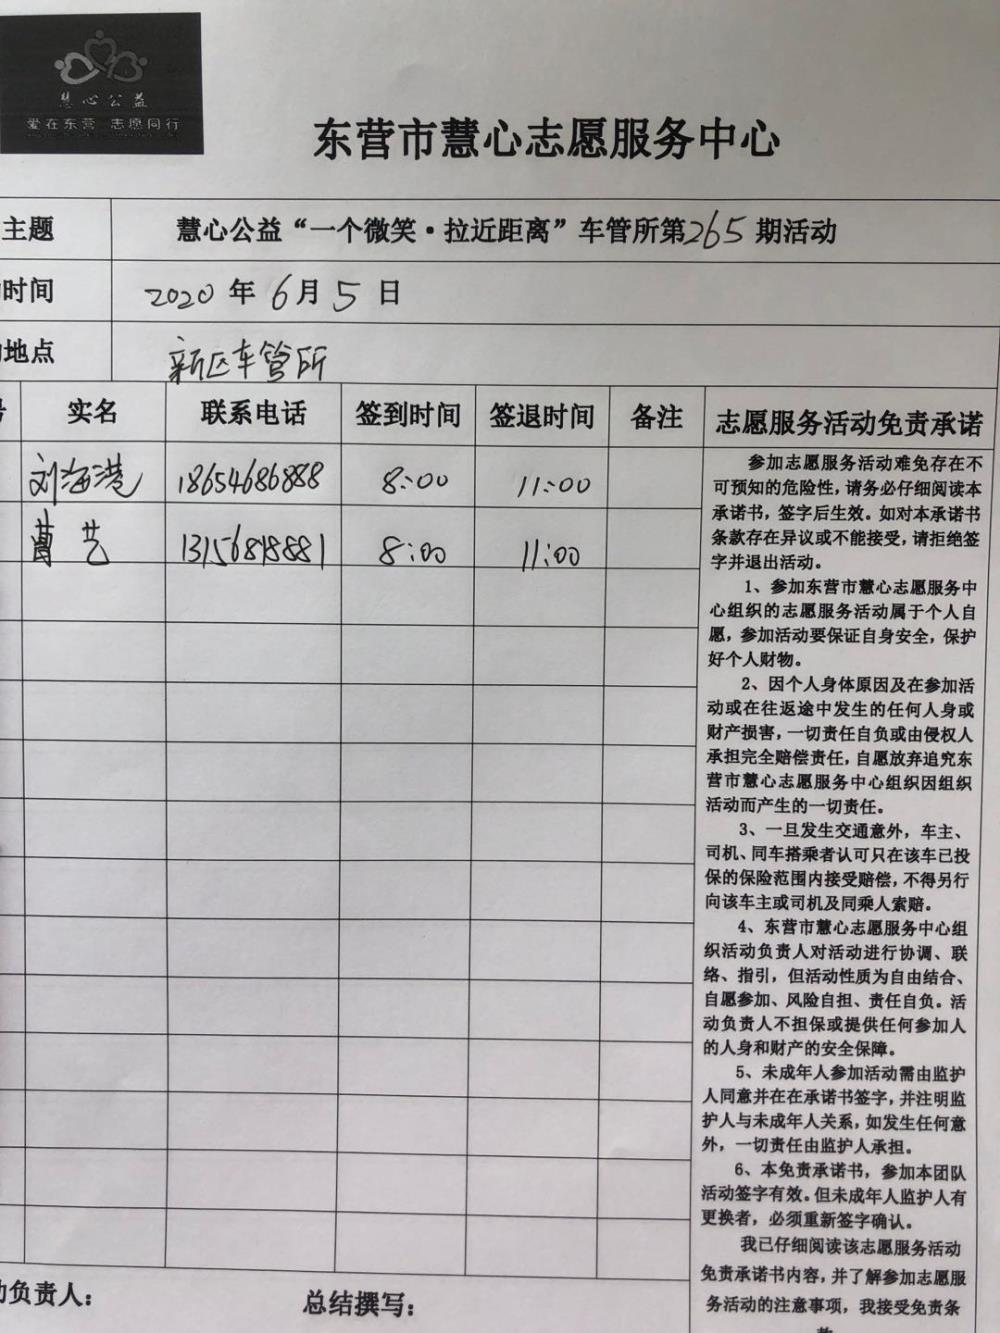 慧心公益
爱在东营 志愿同行
东营市慧心志愿服务中心
主题 慧心公益“一个微笑·拉近距离”车管所第265期活动
时间 2020年6月5日
地点 新区车管所
实名 联系电话 签到时间 签退时间 备注 志愿服务活动免责承诺
刘海港 18654686888 8:00 11:00
曹艺 13156818881 8:00 11:00
参加志愿服务活动难免存在不
可预知的危险性，请务必仔细阅读本
承诺书，签字后生效。如对本承诺书
条款存在异议或不能接受，请拒绝签
字并退出活动。
1、参加东营市慧心志愿服务中
心组织的志愿服务活动属于个人自
愿，参加活动要保证自身安全，保护
好个人财物。
2、因个人身体原因及在参加活
动或在往返途中发生的任何人身或
财产损害，一切责任自负或由侵权人
承担完全赔偿责任，自愿放弃追究东
营市慧心志愿服务中心组织因组织
活动而产生的一切责任。
3、一旦发生交通意外，车主、
司机、同车搭乘者认可只在该车已投
保的保险范围内接受赔偿，不得另行
向该车主或司机及同乘人索赔。
4、东营市慧心志愿服务中心组
织活动负责人对活动进行协调、联
络、指引，但活动性质为自由结合、
自愿参加、风险自担、责任自负。活
动负责人不担保或提供任何参加人
的人身和财产的安全保障。
5、未成年人参加活动需由监护
人同意并在在承诺书签字，并注明监
护人与未成年人关系，如发生任何意
外，一切责任由监护人承担。
6、本免责承诺书，参加本团队
活动签字有效。但未成年人监护人有
更换者，必须重新签字确认。
我已仔细阅读该志愿服务活动
免责承诺书内容，并了解参加志愿服
务活动的注意事项，我接受免责条
动负责人： 总结撰写：